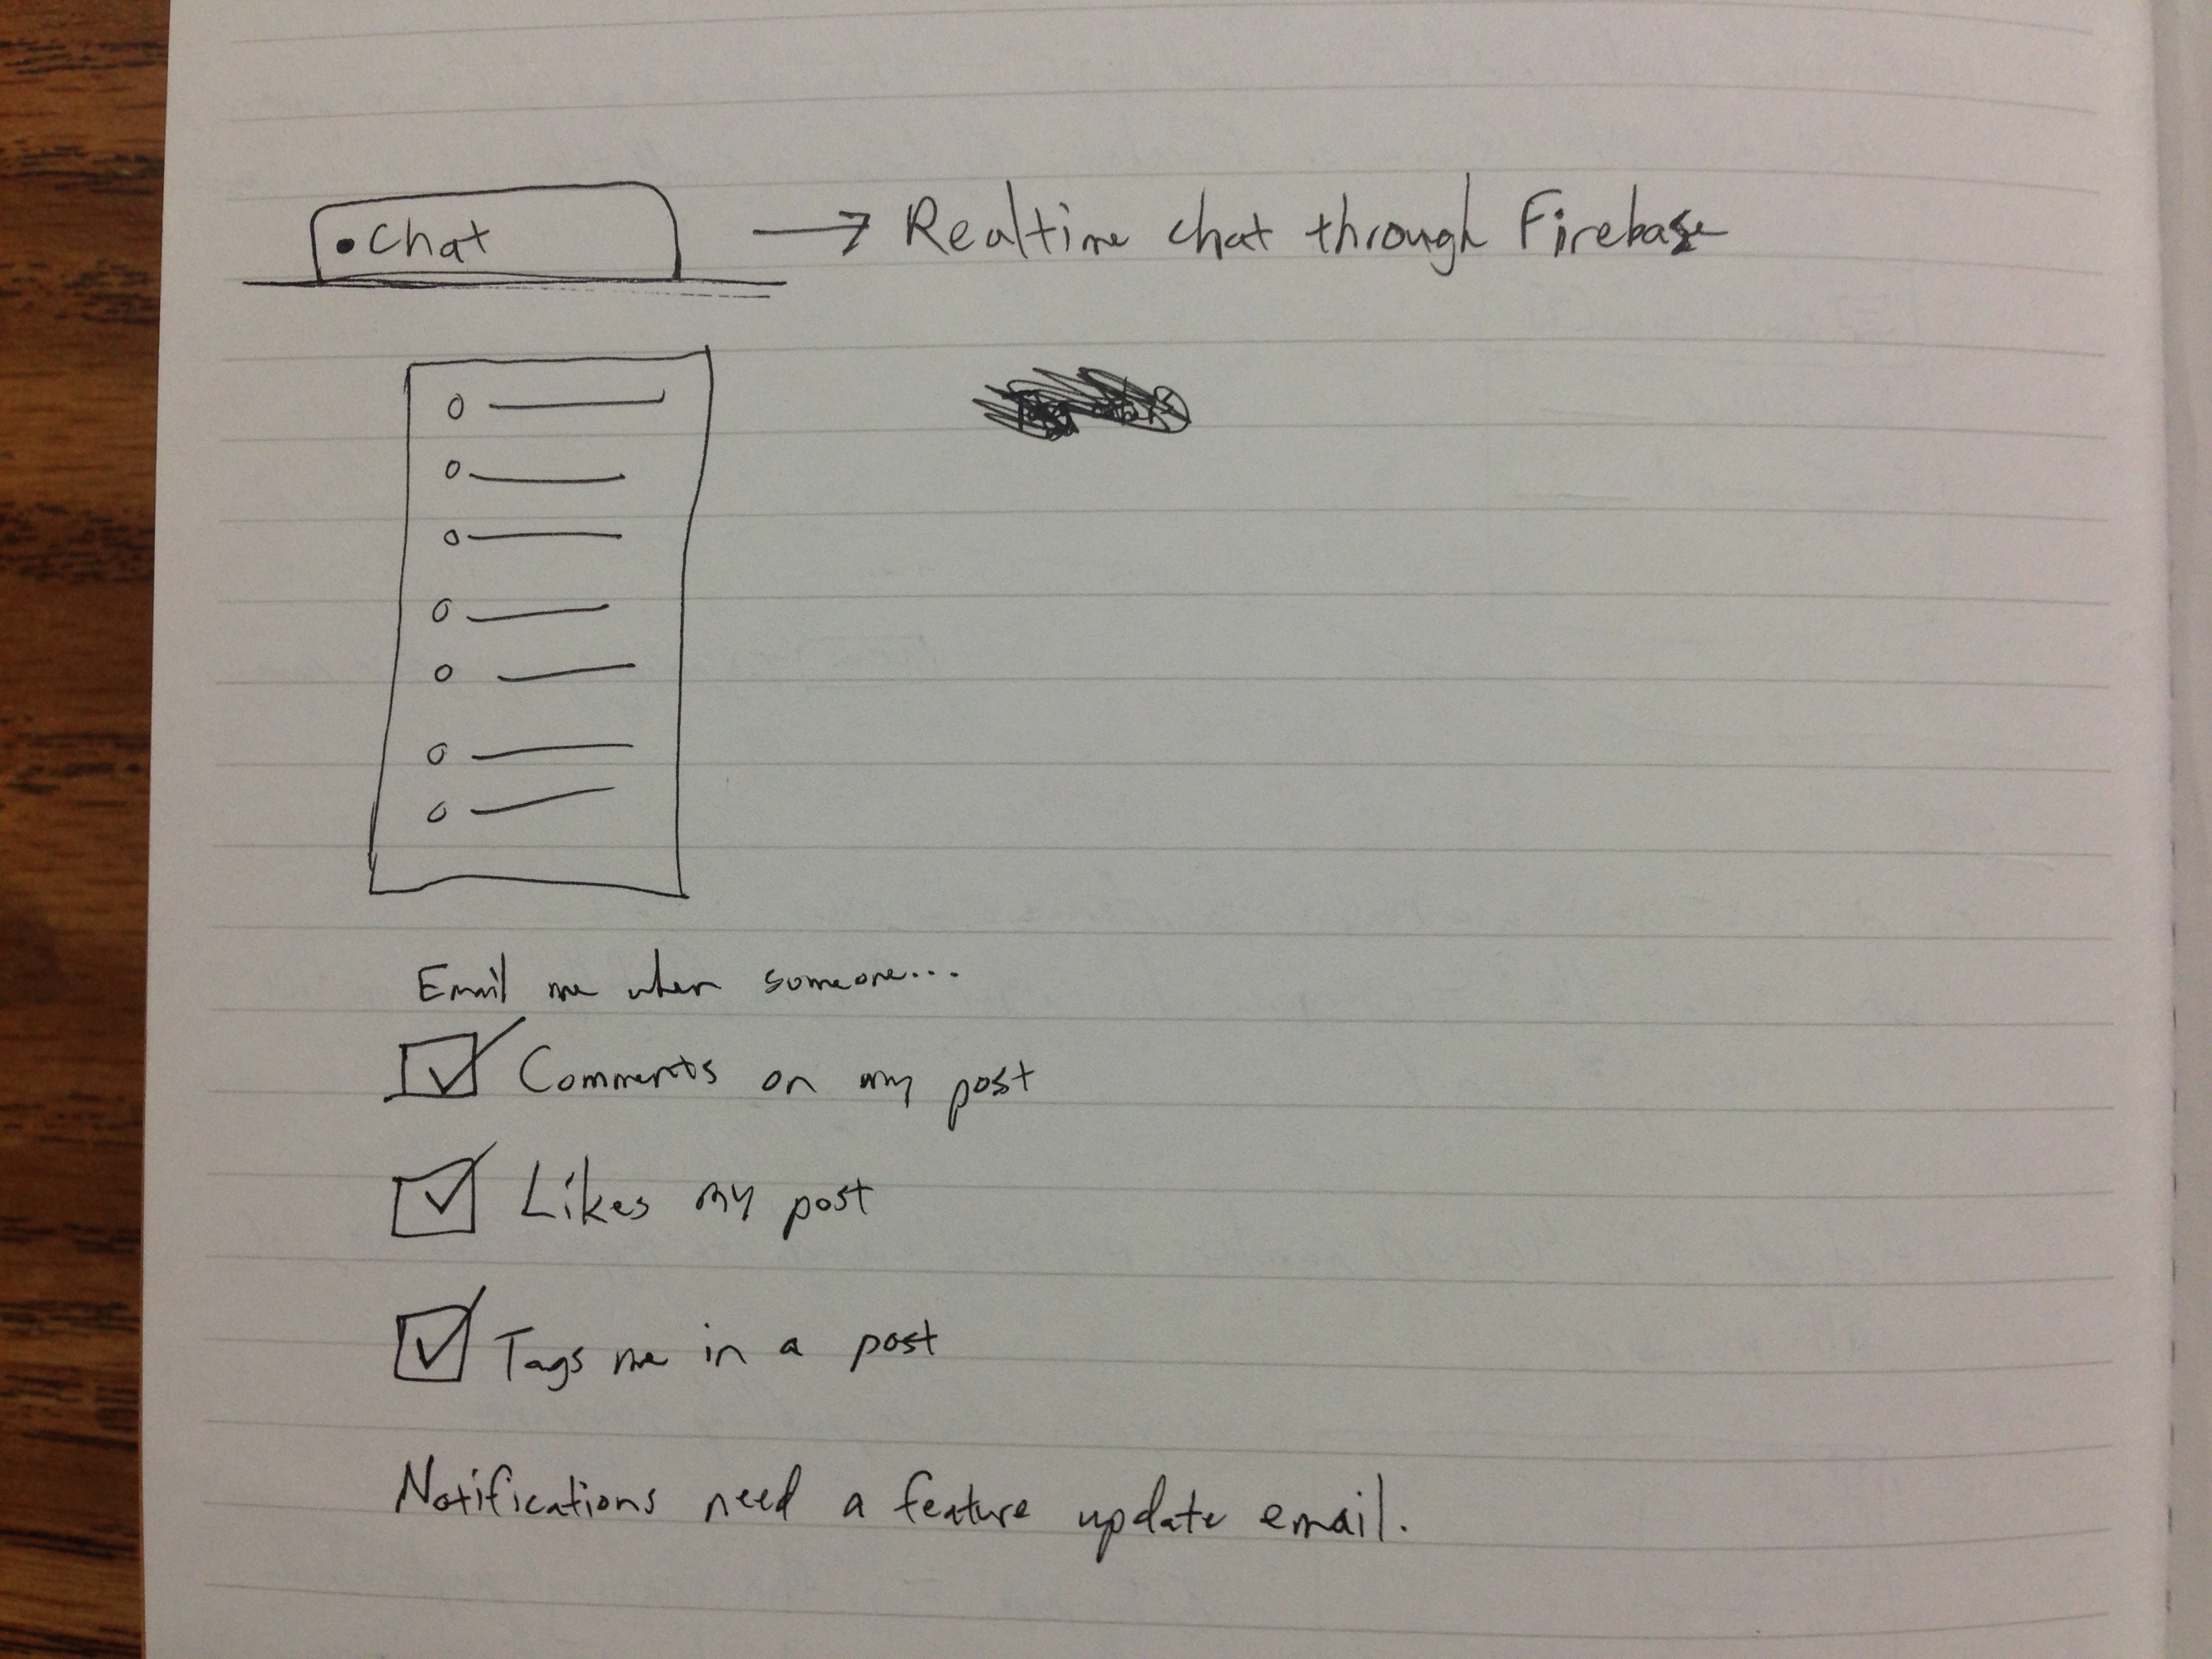 • Chat → Realtime chat through Firebase
Email me when someone...
Comments on my post
Likes my post
Tags me in a post
Notifications need a feature update email.